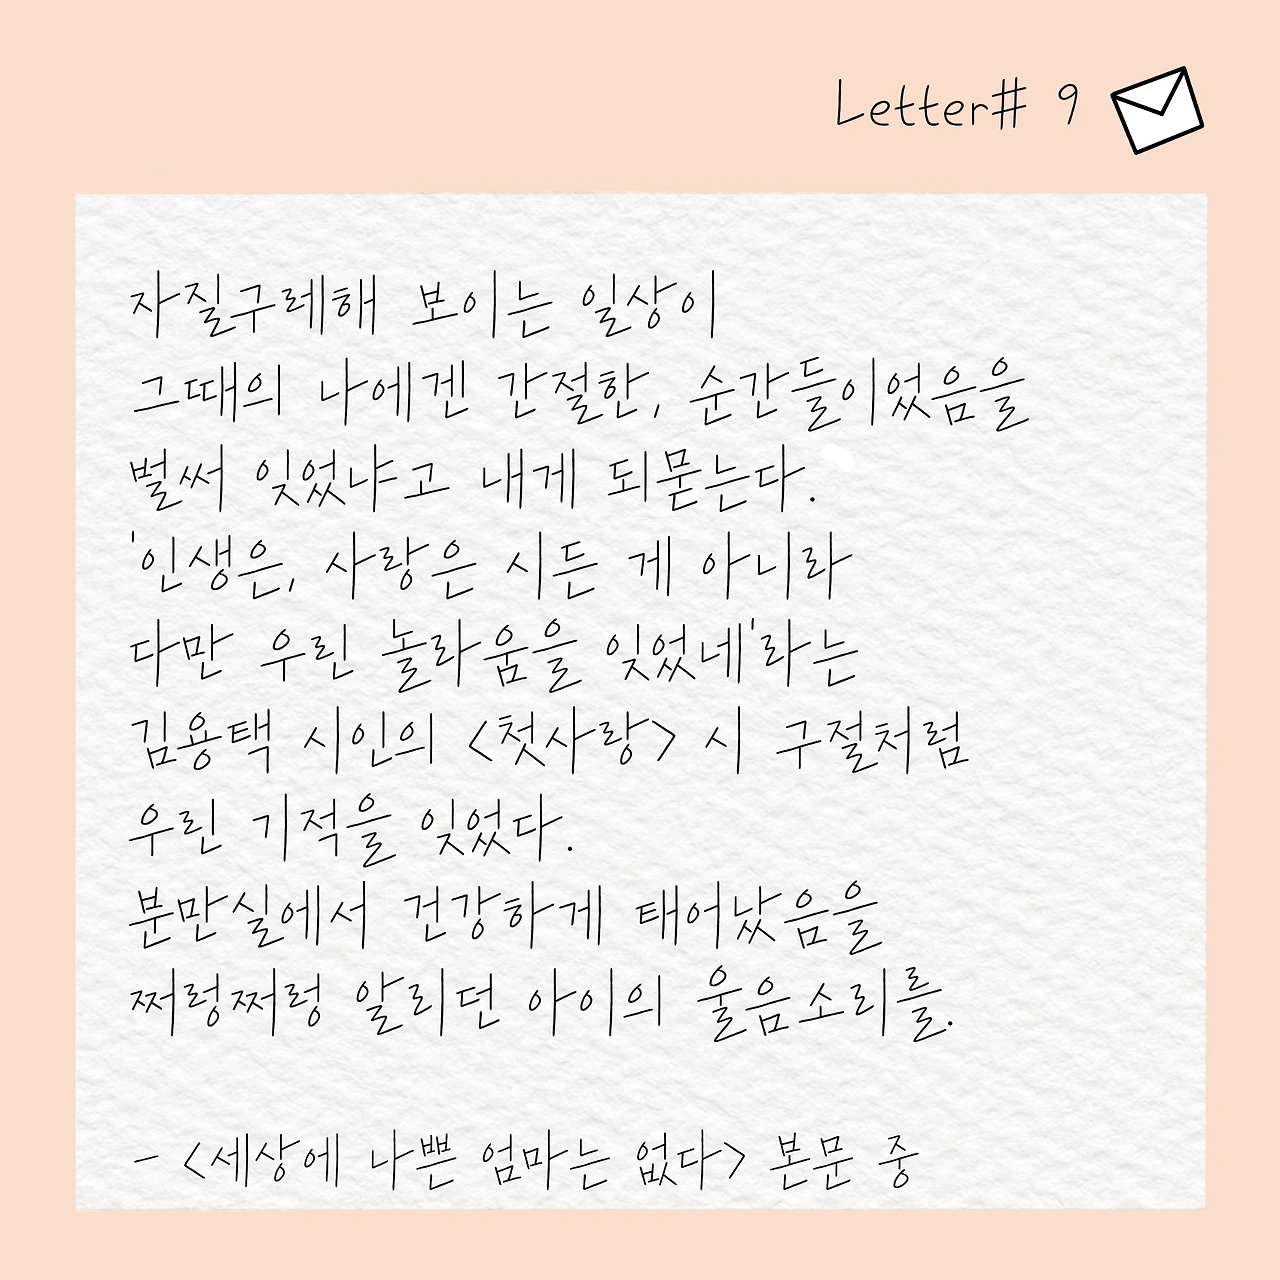 Letter# 9
자질구레해 보이는 일상이
그때의 나에겐 간절한, 순간들이었음을
벌써 잊었냐고 내게 되묻는다.
'인생은, 사랑은 시든 게 아니라
다만 우린 놀라움을 잊었네'라는
김용택 시인의 <첫사랑> 시 구절처럼
우린 기적을 잊었다.
분만실에서 건강하게 태어났음을
쩌렁쩌렁 알리던 아이의 울음소리를.
- <세상에 나쁜 엄마는 없다> 본문 중